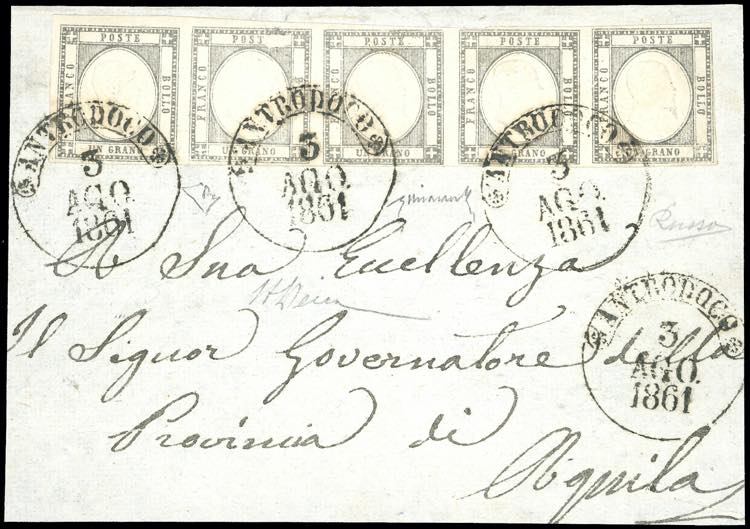 POSTE POST POSTE POSTE POSTE
FRANCO BOLLO FRANCO BOLLO FRANCO BOLLO FRANCO BOLLO FRANCO BOLLO
UN GRANO UN GRANO UN GRANO UN GRANO UN GRANO
ANTRODOCO
3
AGO.
1861
ANTRODOCO
3
AGO.
1861
ANTRODOCO
3
AGO.
1861
A Sua Eccellenza
Il Signor Governatore della
Provincia di
Aquila
ANTRODOCO
3
AGO.
1861